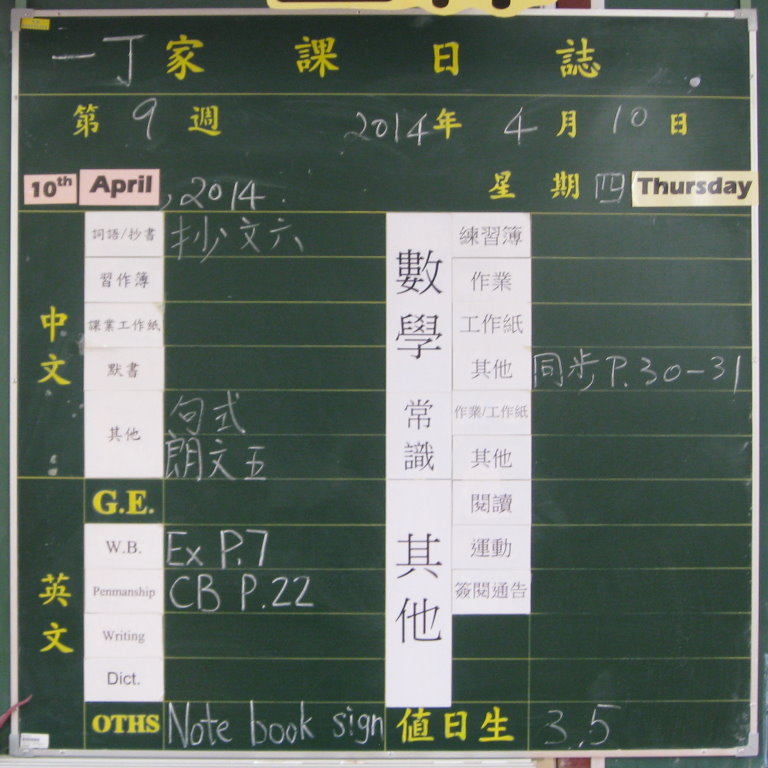 一丁家課日誌
第9週 2014年4月10日
10th April, 2014. 星期四 Thursday
中文
詞語/抄書 抄文六
習作簿
課業工作紙
默書
其他 句式
朗文五
英文
G.E.
W.B. Ex P.7
Penmanship CB P.22
Writing
Dict.
OTHS Note book sign
數學
練習簿
作業
工作紙
其他 同步P.30-31
常識
作業/工作紙
其他
其他
閱讀
運動
簽閱通告
值日生 3,5